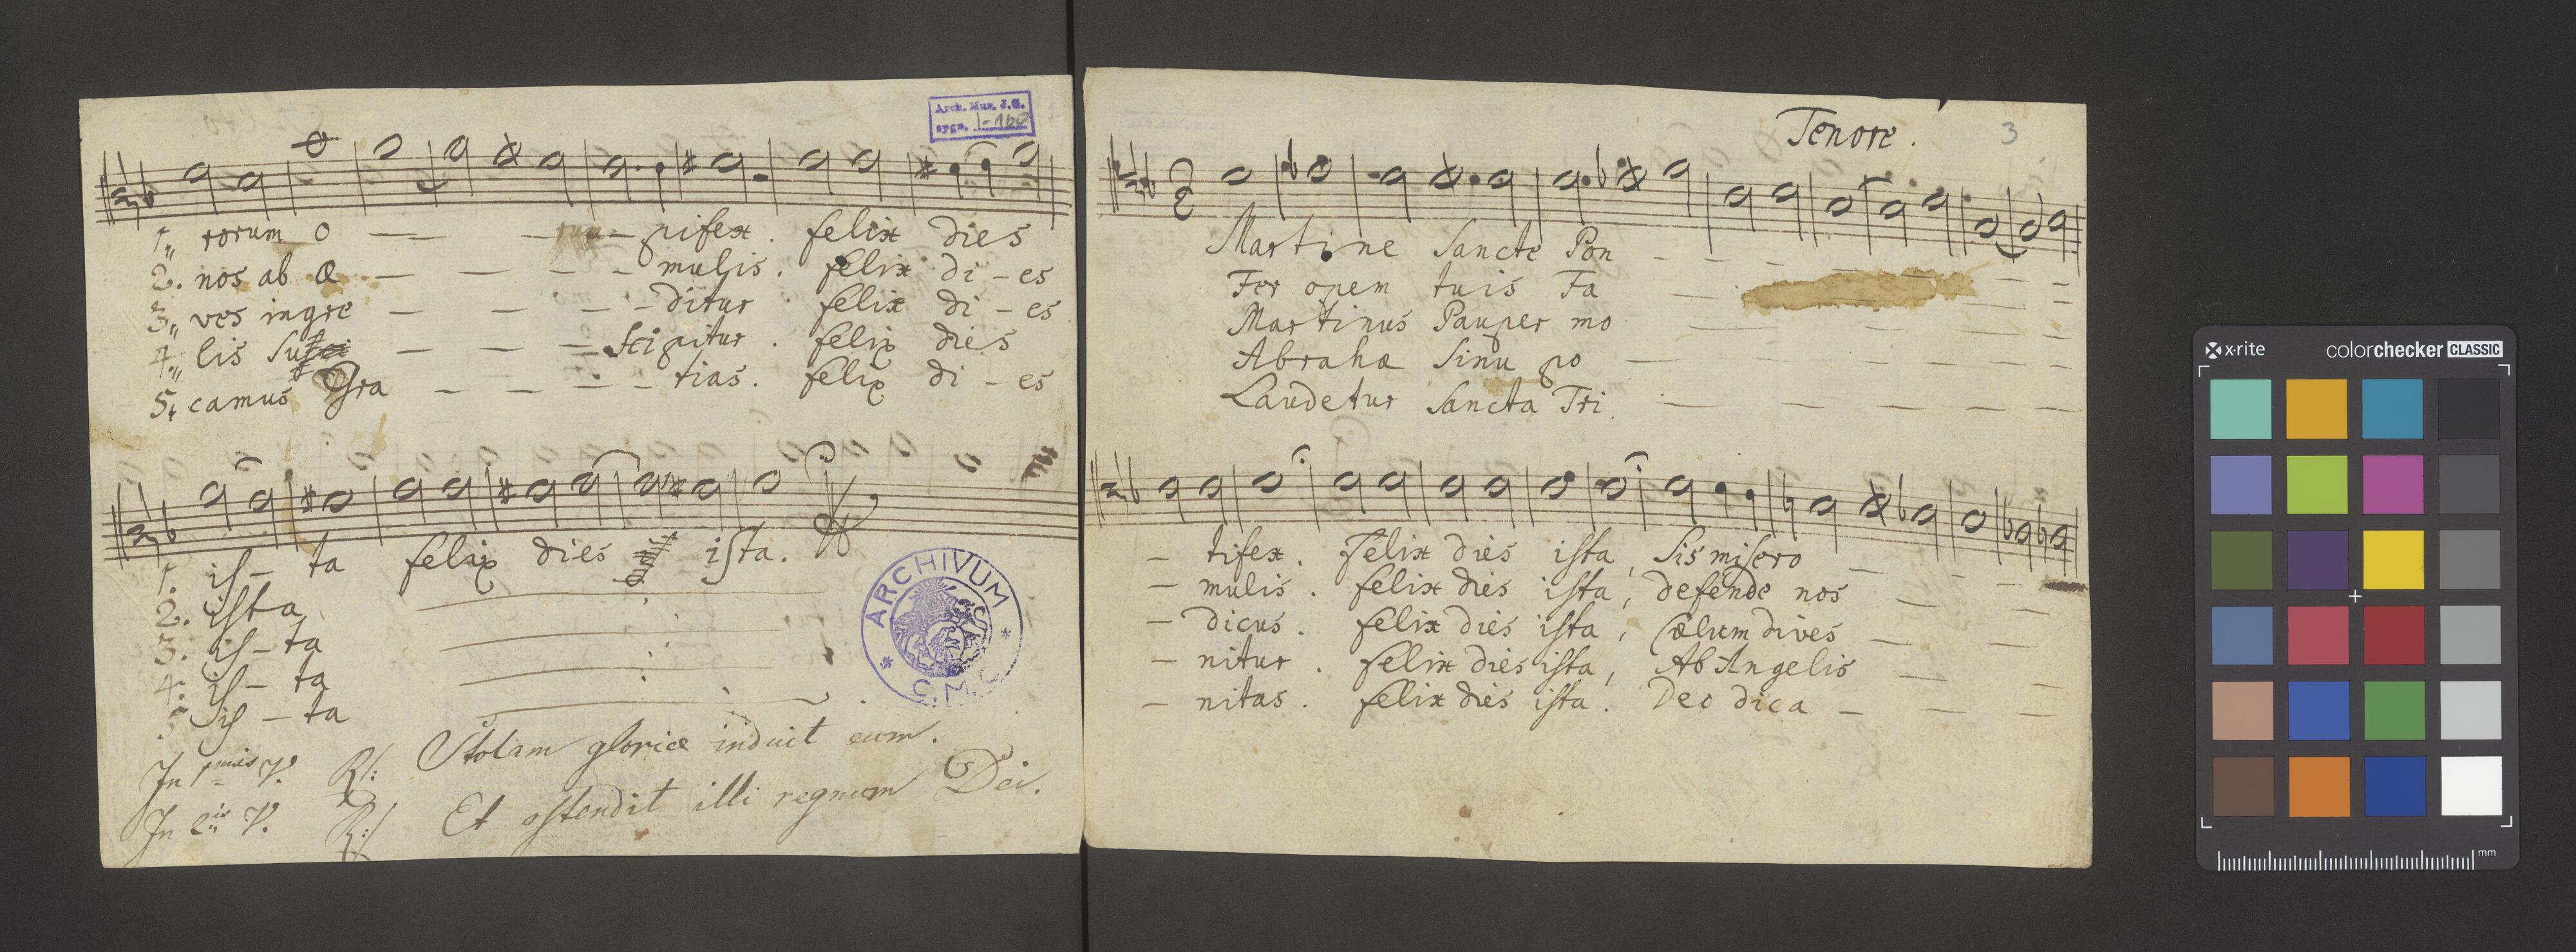 Arch. Mus. J.G.
sygn. I-160
1,, rorum O — — — pifex . felix dies
2. nos ab Æ — — — — mulis . felix di - es
3,, ves ingre — — — — ditur . felix di - es
4,, lis Su — — — Scipitur . felix dies
5. camus Gra — — — — tias . felix di - es
1. is - ta felix dies ista .
2. ista
3. is - ta
4. is - ta
5 is - ta
ARCHIVUM
C.M.C.
In 1mis V. R/: Stolam gloriæ induit eum .
In 2is V. R:/ Et ostendit illi regnum Dei .
Tenore .
3
Martine Sancte Pon — — — — —
Fer opem tuis Fa — — —
Martinus Pauper mo — — — — —
Abrahæ Sinu po — — — — — —
Laudetur Sancta Tri. — — — — — —
— tifex . Felix dies ista , Sis misero — — —
— mulis . felix dies ista , defende nos — — —
— dicus . felix dies ista , Cælum dives — — —
— nitur . felix dies ista , Ab Angelis — — —
— nitas . felix dies ista . Deo dica — — —
x·rite
colorchecker CLASSIC
mm